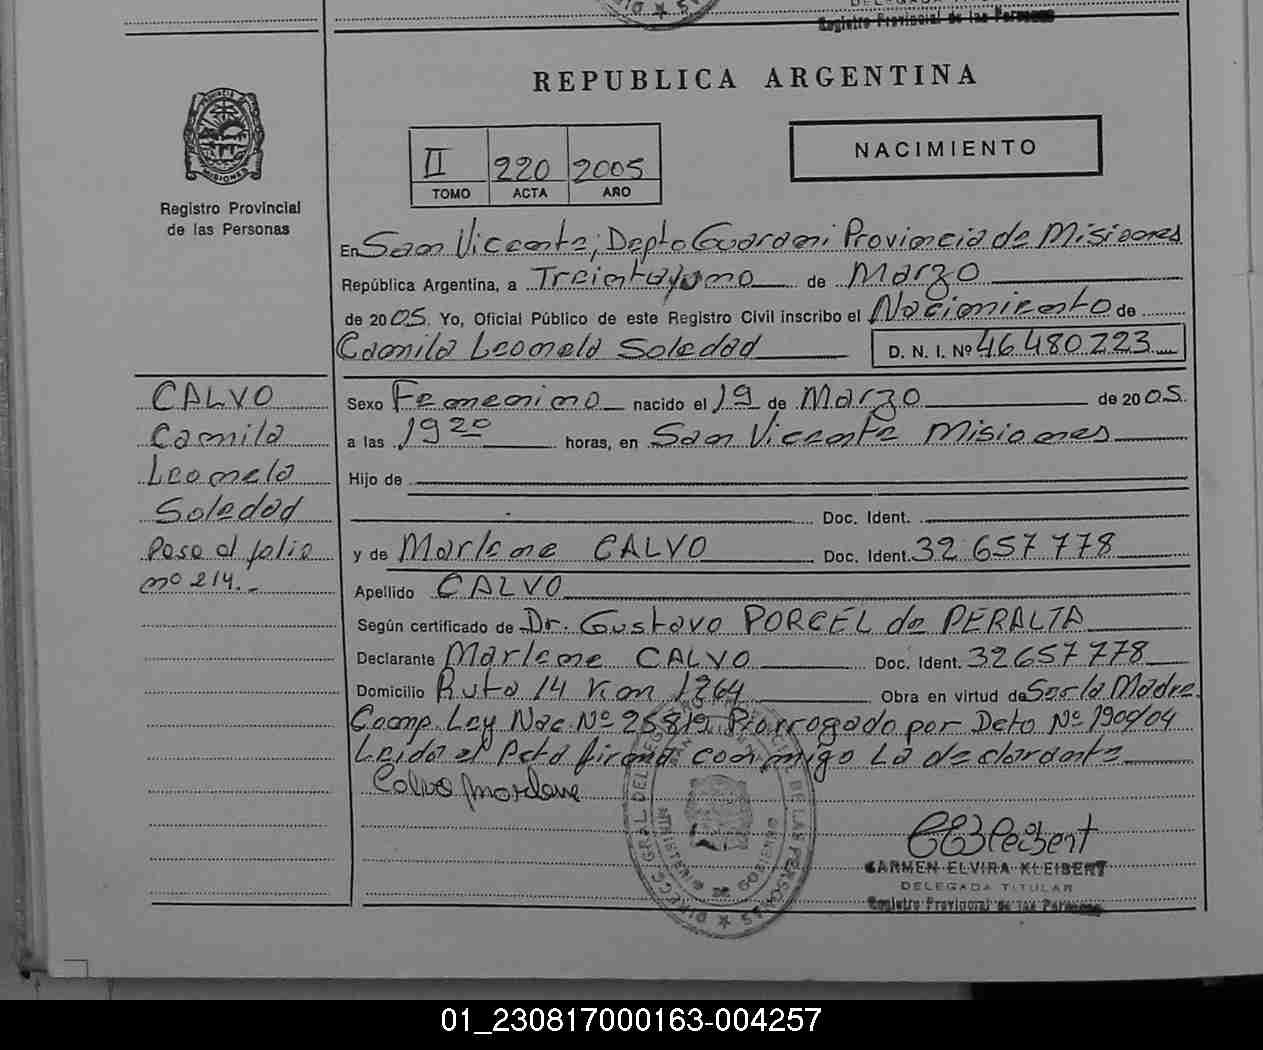 Registro Provincial de las Personas
REPUBLICA ARGENTINA
II 220 2005
TOMO ACTA AÑO
NACIMIENTO
MISIONES
Registro Provincial
de las Personas
En San Vicente, Depto Guarani Provincia de Misiones
República Argentina, a Treintayuno de Marzo
de 2005. Yo, Oficial Público de este Registro Civil inscribo el Nacimiento de
Camila Leonela Soledad D. N. I. Nº 46 480 223
CALVO
Camila
Leonela
Soledad
Pasa al folio
nº 214.-
Sexo Femenino nacido el 19 de Marzo de 2005.
a las 19 20 horas, en San Vicente Misiones
Hijo de
Doc. Ident.
y de Marlene CALVO Doc. Ident. 32 657 778
Apellido CALVO
Según certificado de Dr. Gustavo PORCEL de PERALTA
Declarante Marlene CALVO Doc. Ident. 32657778
Domicilio Ruta 14 Km 1264 Obra en virtud de Ser la Madre
Comp. Ley Nac. Nº 25819 Prorrogado por Dcto Nº 1900/04
Leida el Acta firma conmigo La declarante
Calvo Marlene
CARMEN ELVIRA KLEIBERT
DELEGADA TITULAR
Registro Provincial de las Personas
01_230817000163-004257